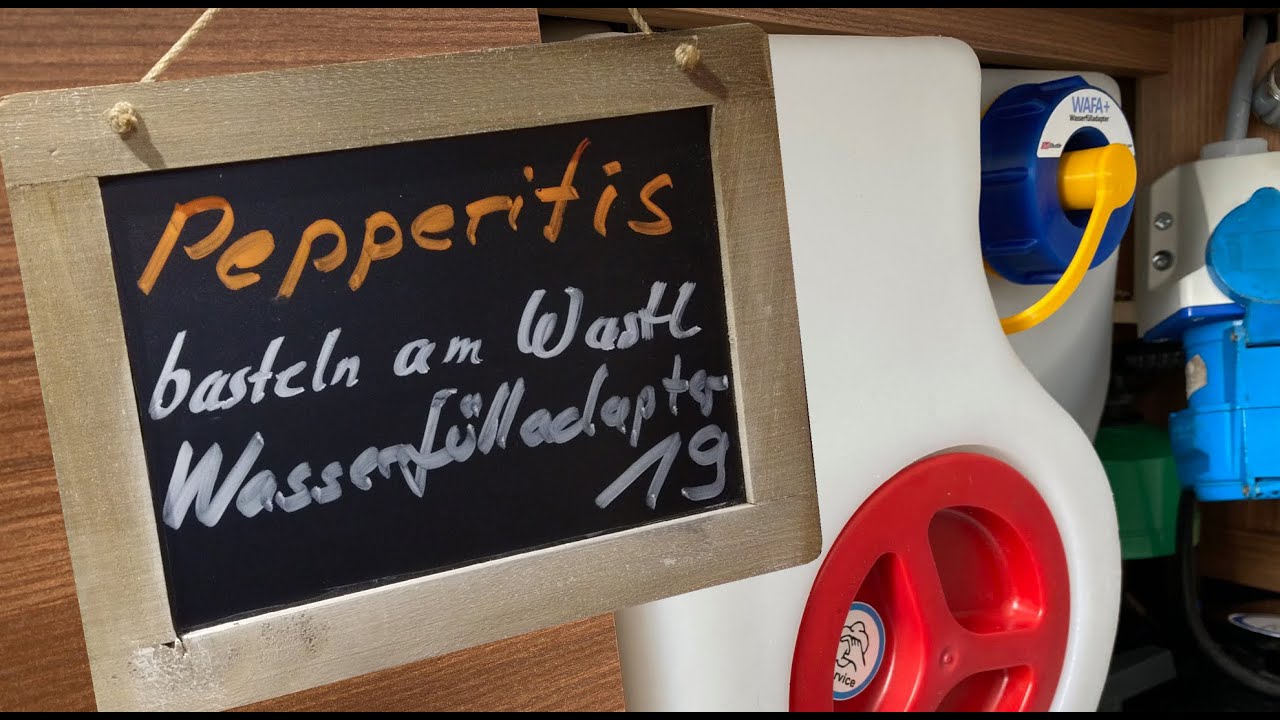 Pepperitis
basteln am Wastl
Wasserfülladapter
19
WAFA+
Wasserfülladapter